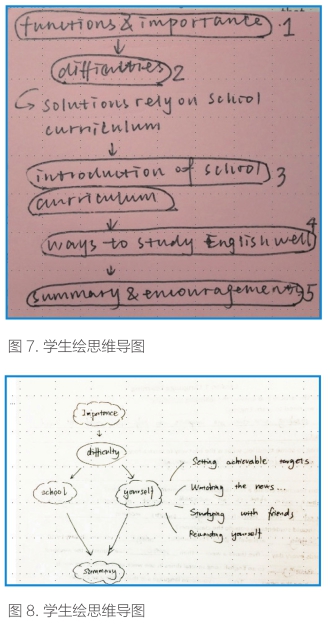 functions & importance 1
difficulties 2
solutions rely on school
curriculum
introduction of school 3
curriculum
ways to study English well 4
summary & encouragement 5
图 7. 学生绘思维导图
Importance
difficulty
school
yourself
Setting achievable targets
Watching the news...
Studying with friends
Rewarding yourself
Summary
图 8. 学生绘思维导图